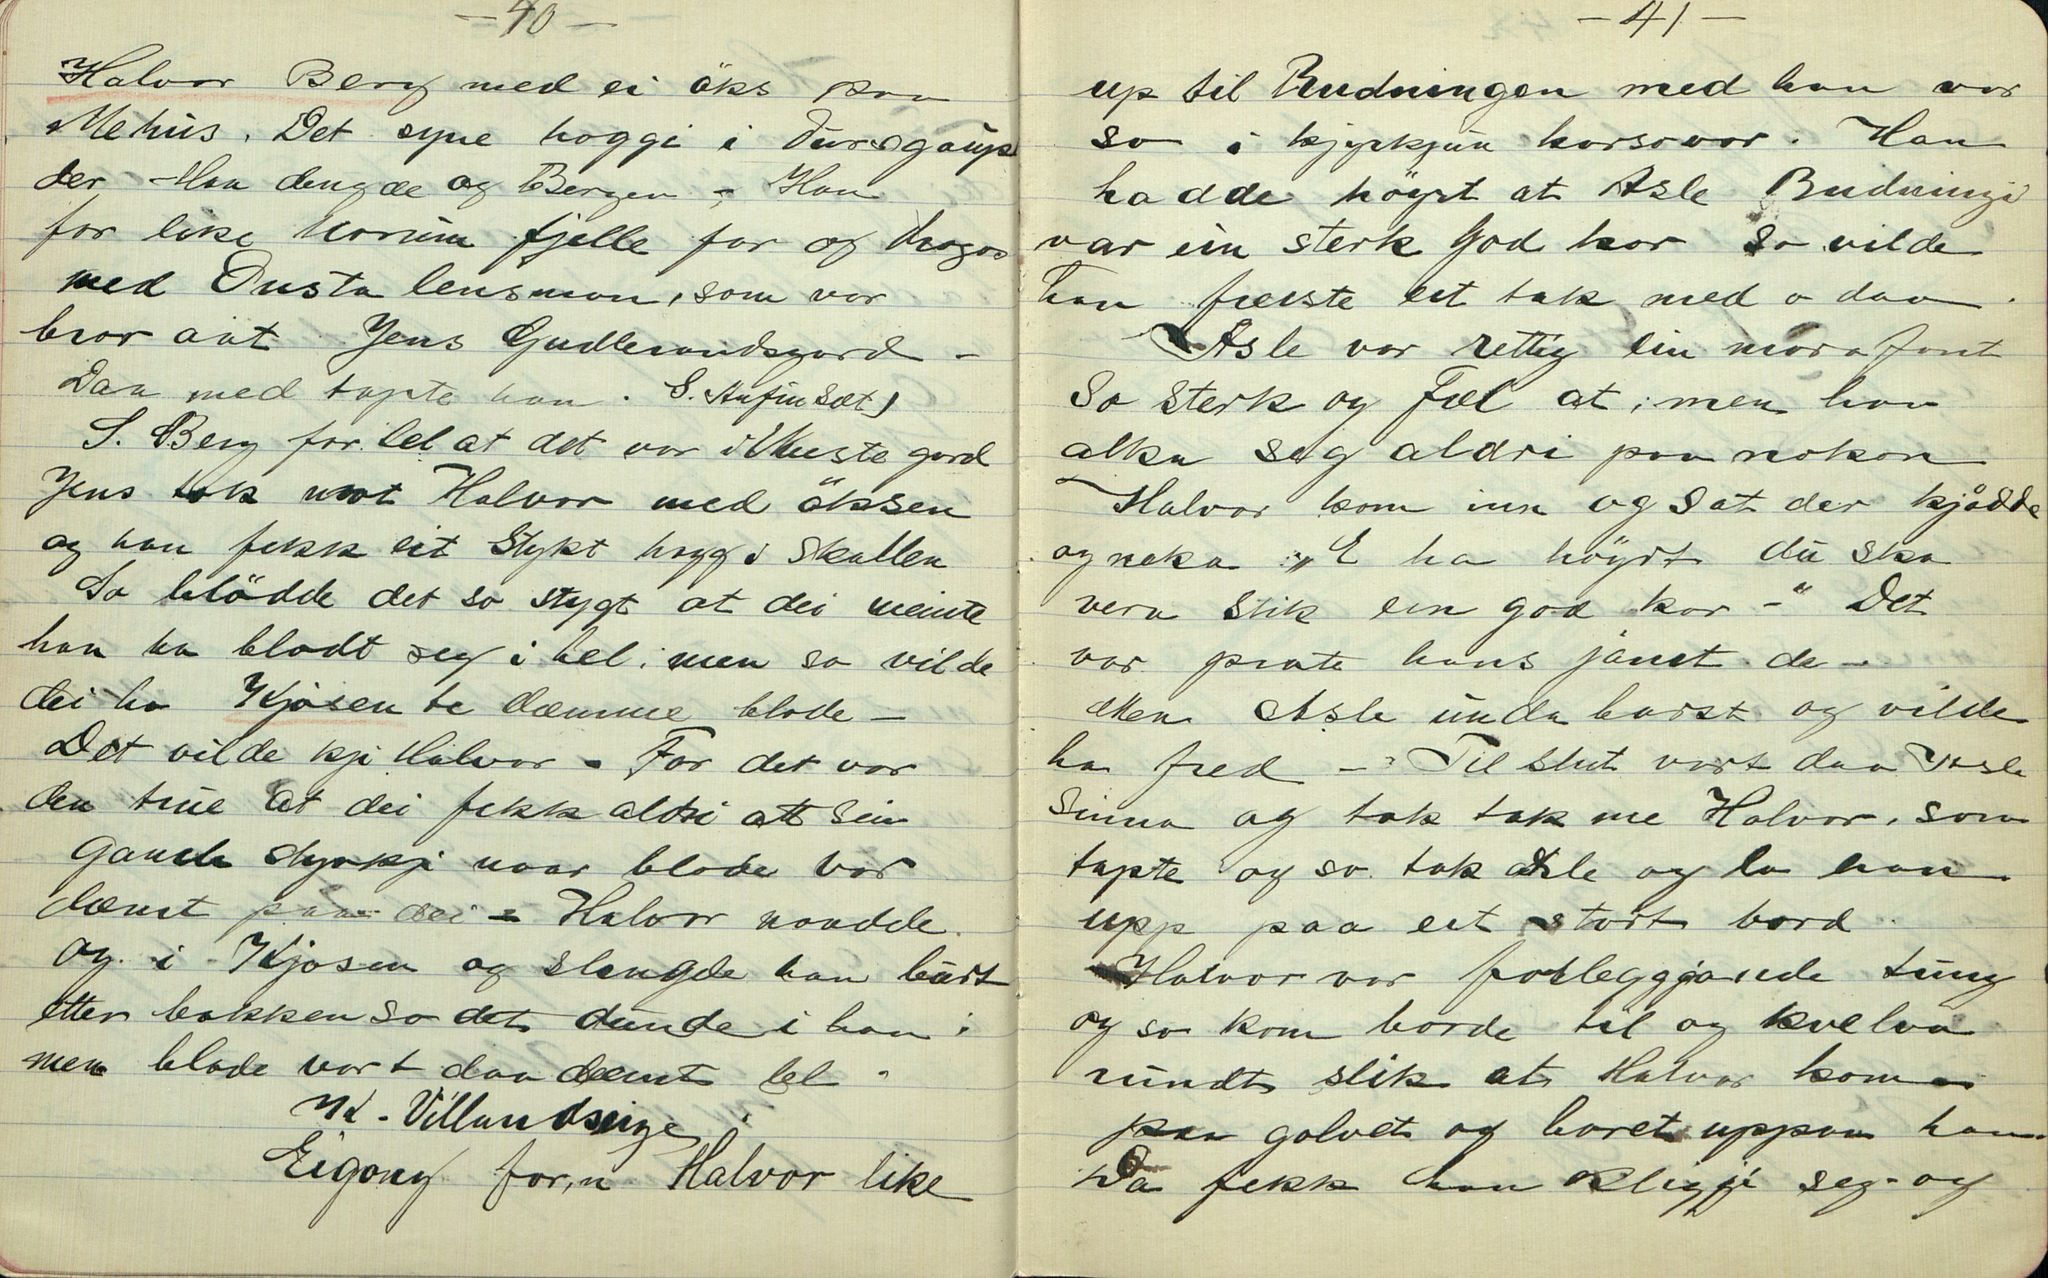 - 40 -
Halvor Berg med ei öks paa
Mehus. Det syne hoggi i
der - Han dengde og Bergen - Han
for like norum fjelle for og drogos
med Ousta lensmon, som var
bror aat Jens Gudbrandsgard -
Daa med tapte han. S. Anfinset)
S. Berg fortel at det var i Muste gard
Jens tok mot Halvor med öksen
og han fekk eit stykt hogg i skallen
So blödde det so stygt at dei meinte
han ha blödt seg i hel; men so vilde
dei ha Kjösen te dæmme blode -
Det vilde kji Halvor - For det var
den true at dei fekk aldri att sin
gamle styrkji naar blode var
dæmt paa dei - Halvor naadde
og i Kjösen og slengde han burt
etter bakken so det dunde i han;
men blode vart daa dæmt lel.
Villandseige
Eigong for,n Halvor like
- 41 -
up til Rudningen med han var
so i kjyrkjun korsovor. Han
hadde höyrt at Asle Rudningi
var ein sterk god kar so vilde
han freiste eit tak med o daa.
Asle var rettig ein morafant
So sterk og fæl at; men han
alka seg aldri paa nokon
Halvor kom inn og sat der kjådde
og neka "E ha höyrt du ska
vera slik ein god kar -" Det
var prate hans jamt de -
Men Asle unda barst og vilde
ha fred - Til slut vart daa Asle
sinna og tok tak me Halvor, som
tapte og so tok Asle og la han
upp paa eit stort bord
Halvor var forleggjande tung
og so kom borde til og kvelva
rundt slik at Halvor kom
paa golvet og boret uppaa han.
Da fekk han kliggji seg og